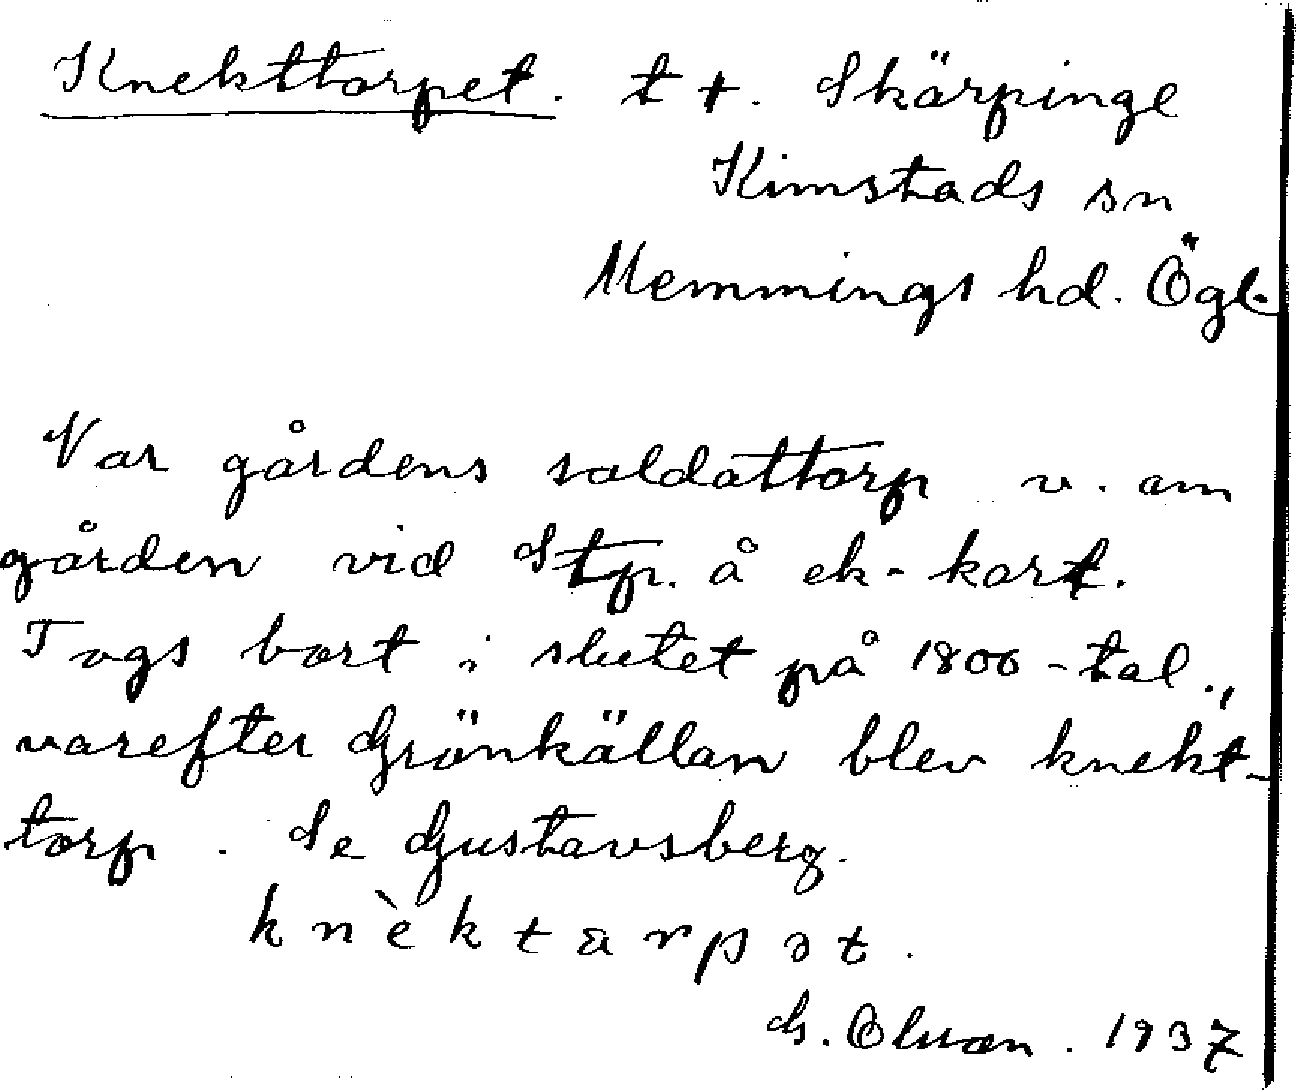 Knekttorpet. t t. Skärpinge
Kimstads sn
Memmings hd. Ögl.
Var gårdens soldattorp v. om
gården vid Stp. å ek-kart.
Togs bort i slutet på 1800-tal.,
varefter Grönkällan blev knekt-
torp. Se Gustavsberg.
knèktarpət.
G. Olson. 1937